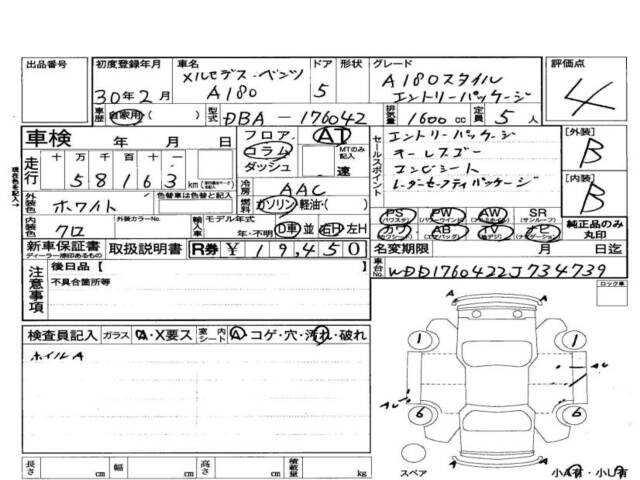 出品番号
初度登録年月 30年2月
車名 メルセデス・ベンツ A180
ドア 5
形状
グレード A180スタイル エントリーパッケージ
評価点 4
車歴 自家用
型式 DBA-176042
排気量 1600cc
定員 5人
車検 年 月 日
フロア コラム ダッシュ
AT
MTのみ記入 速
セールスポイント
エントリーパッケージ
オーレスゴー
エンビシート
レーダーセーフティパッケージ
[外装] B
[内装] B
走行 十 万 千 百 十 一
58163 km
冷房 AAC
燃料 ガソリン 軽油・( )
外装色 ホワイト
色替車は色替と記入
内装色 クロ
外装カラーNo.
輸入車 モデル年式 年・不明
D車 並 右H 左H
PS (パワステ) PW (パワーウインド) AW (アルミホイル) SR (サンルーフ)
カワ (カワシート) AB (エアバッグ) TV (アナデジ) ナビ (ナビゲーション)
純正品のみ丸印
新車保証書 ディーラー捺印あるもの
取扱説明書
R券 ¥19,450
名変期限 月 日迄
車台No. WDD1760422J734739
ロック車
注意事項
後日品 [ ]
不具合箇所等
検査員記入
ガラス A・X要ス
室内シート A・コゲ・穴・汚れ・破れ
ホイルA
A
1 1
6 6
A
スペア
小A有・小U有
長さ cm 幅 cm 高さ cm 積載量 kg